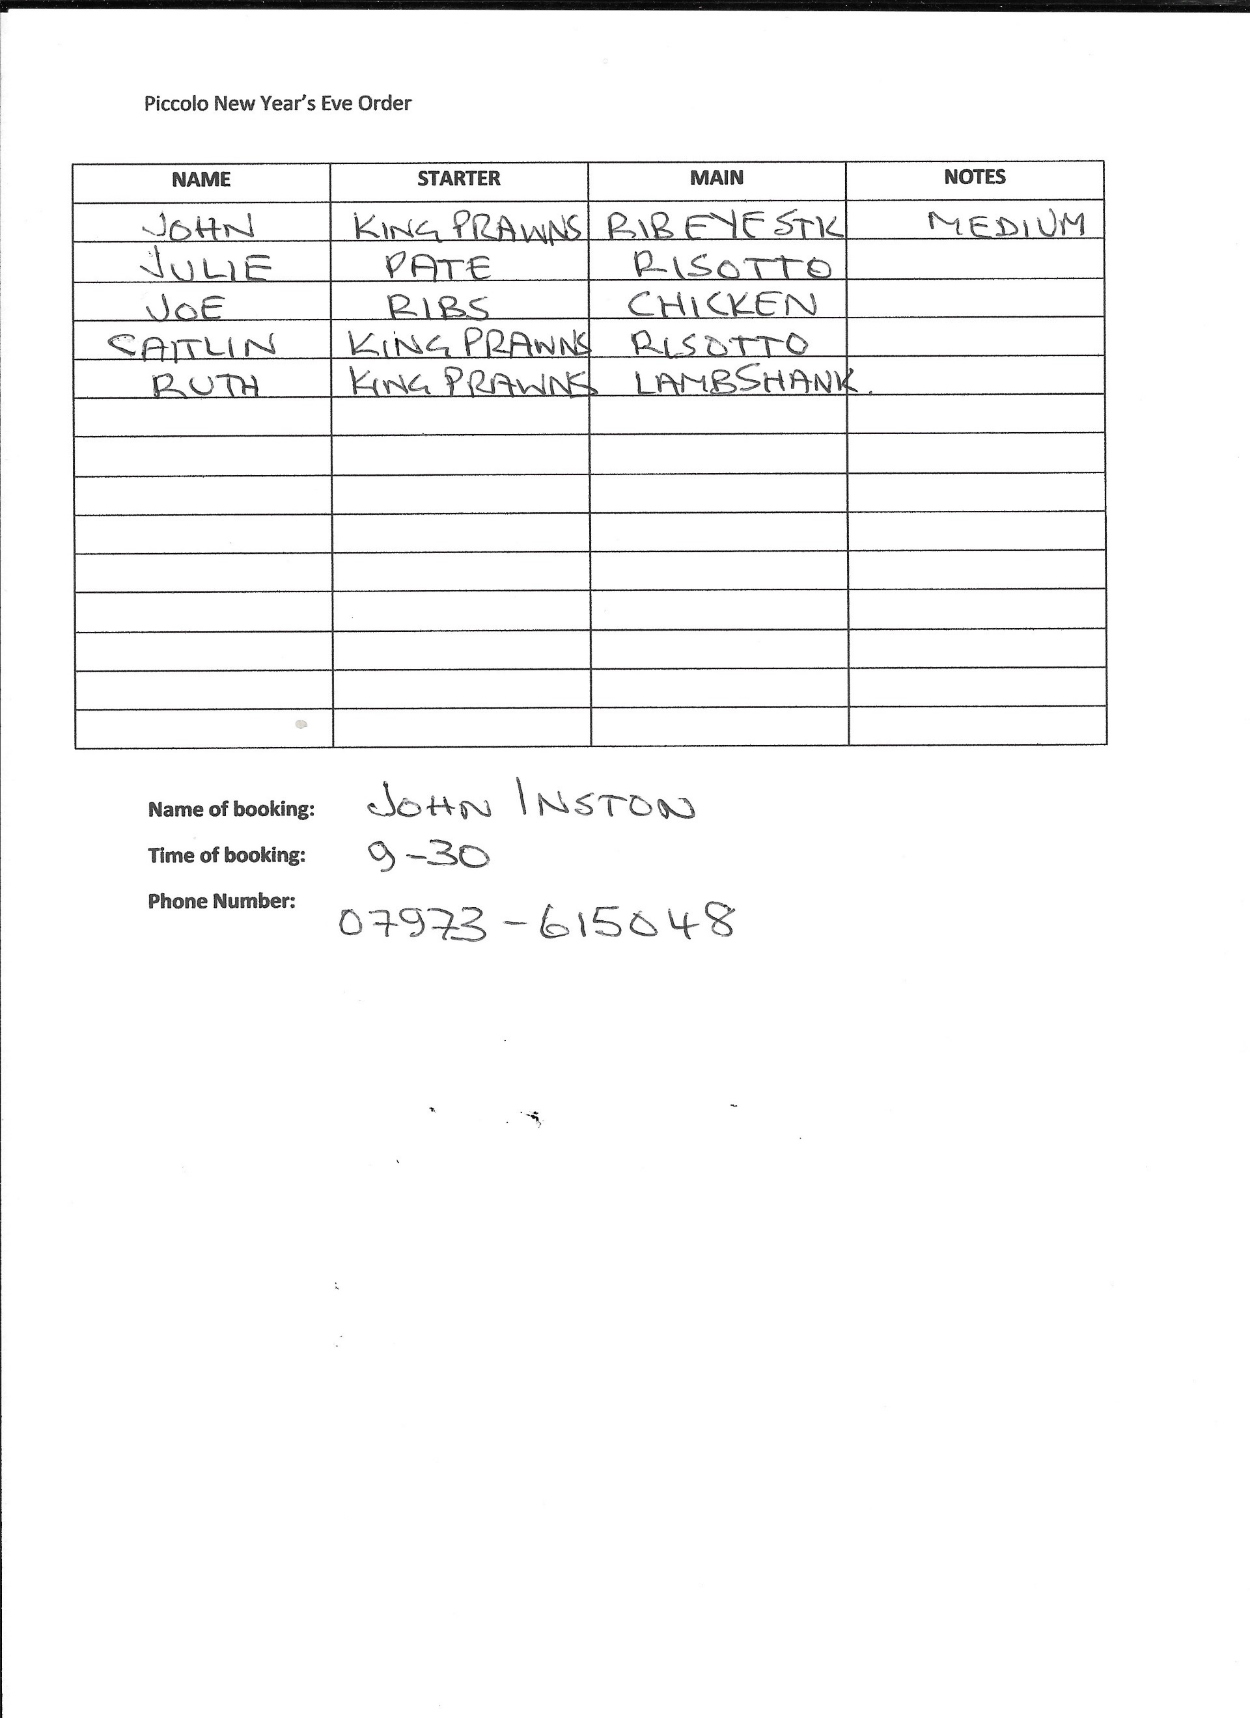 Piccolo New Year's Eve Order
NAME STARTER MAIN NOTES
JOHN KING PRAWNS RIB EYE STK MEDIUM
JULIE PATE RISOTTO
JOE RIBS CHICKEN
CAITLIN KING PRAWNS RISOTTO
RUTH KING PRAWNS LAMBSHANK.
Name of booking: JOHN INSTON
Time of booking: 9-30
Phone Number: 07973-615048